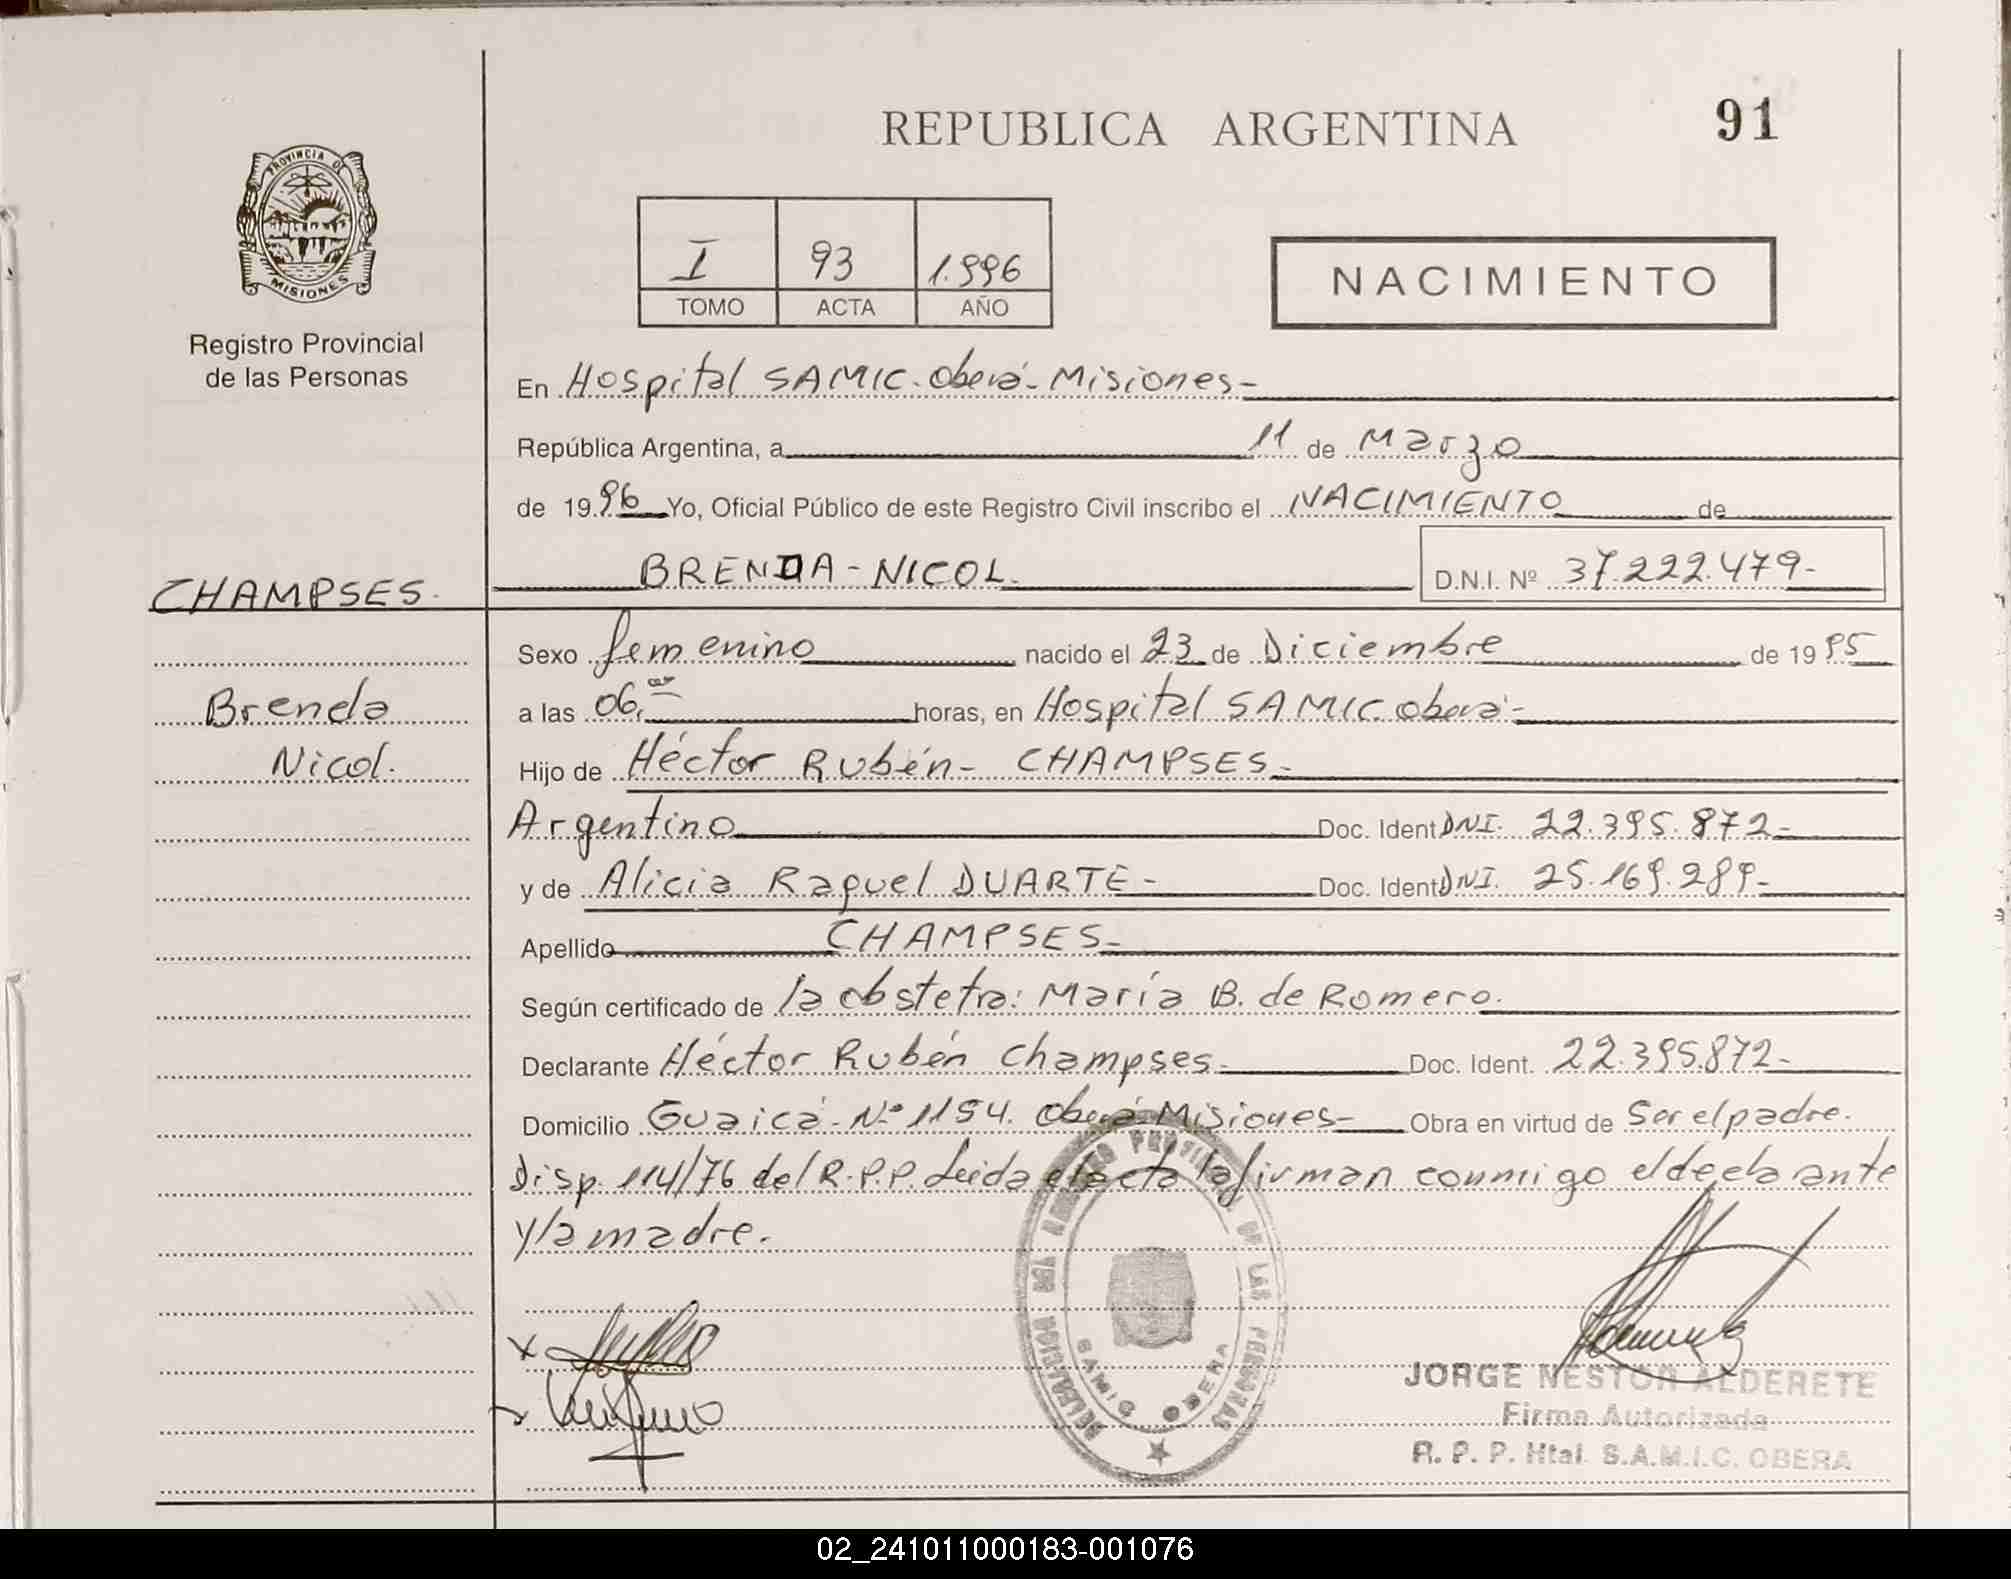 REPUBLICA ARGENTINA
91
PROVINCIA DE
MISIONES
Registro Provincial
de las Personas
I 93 1.996
TOMO ACTA AÑO
NACIMIENTO
En Hospital SAMIC - Oberá - Misiones -
República Argentina, a 11 de Marzo
de 1996 Yo, Oficial Público de este Registro Civil inscribo el NACIMIENTO de
BRENDA - NICOL. D.N.I. Nº 37.222.479-
CHAMPSES.
Brenda
Nicol.
Sexo femenino nacido el 23 de Diciembre de 1995
a las 06, horas, en Hospital SAMIC Oberá -
Hijo de Héctor Rubén - CHAMPSES -
Argentino Doc. Ident DNI. 22.395.872-
y de Alicia Raquel DUARTE - Doc. Ident DNI. 25.169.289-
Apellido CHAMPSES -
Según certificado de la obstetra: María B. de Romero.
Declarante Héctor Rubén Champses - Doc. Ident. 22.395.872-
Domicilio Guaicá - Nº 1154. Oberá - Misiones - Obra en virtud de Ser el padre.
Disp. 114/76 del R.P.P. Leida el acta la firman conmigo el declarante
y la madre.
DELEGACION DEL REGISTRO PROVINCIAL DE LAS PERSONAS
SAMIC OBERA
JORGE NESTOR ALDERETE
Firma Autorizada
R. P. P. Htal. S.A.M.I.C. OBERA
02_241011000183-001076